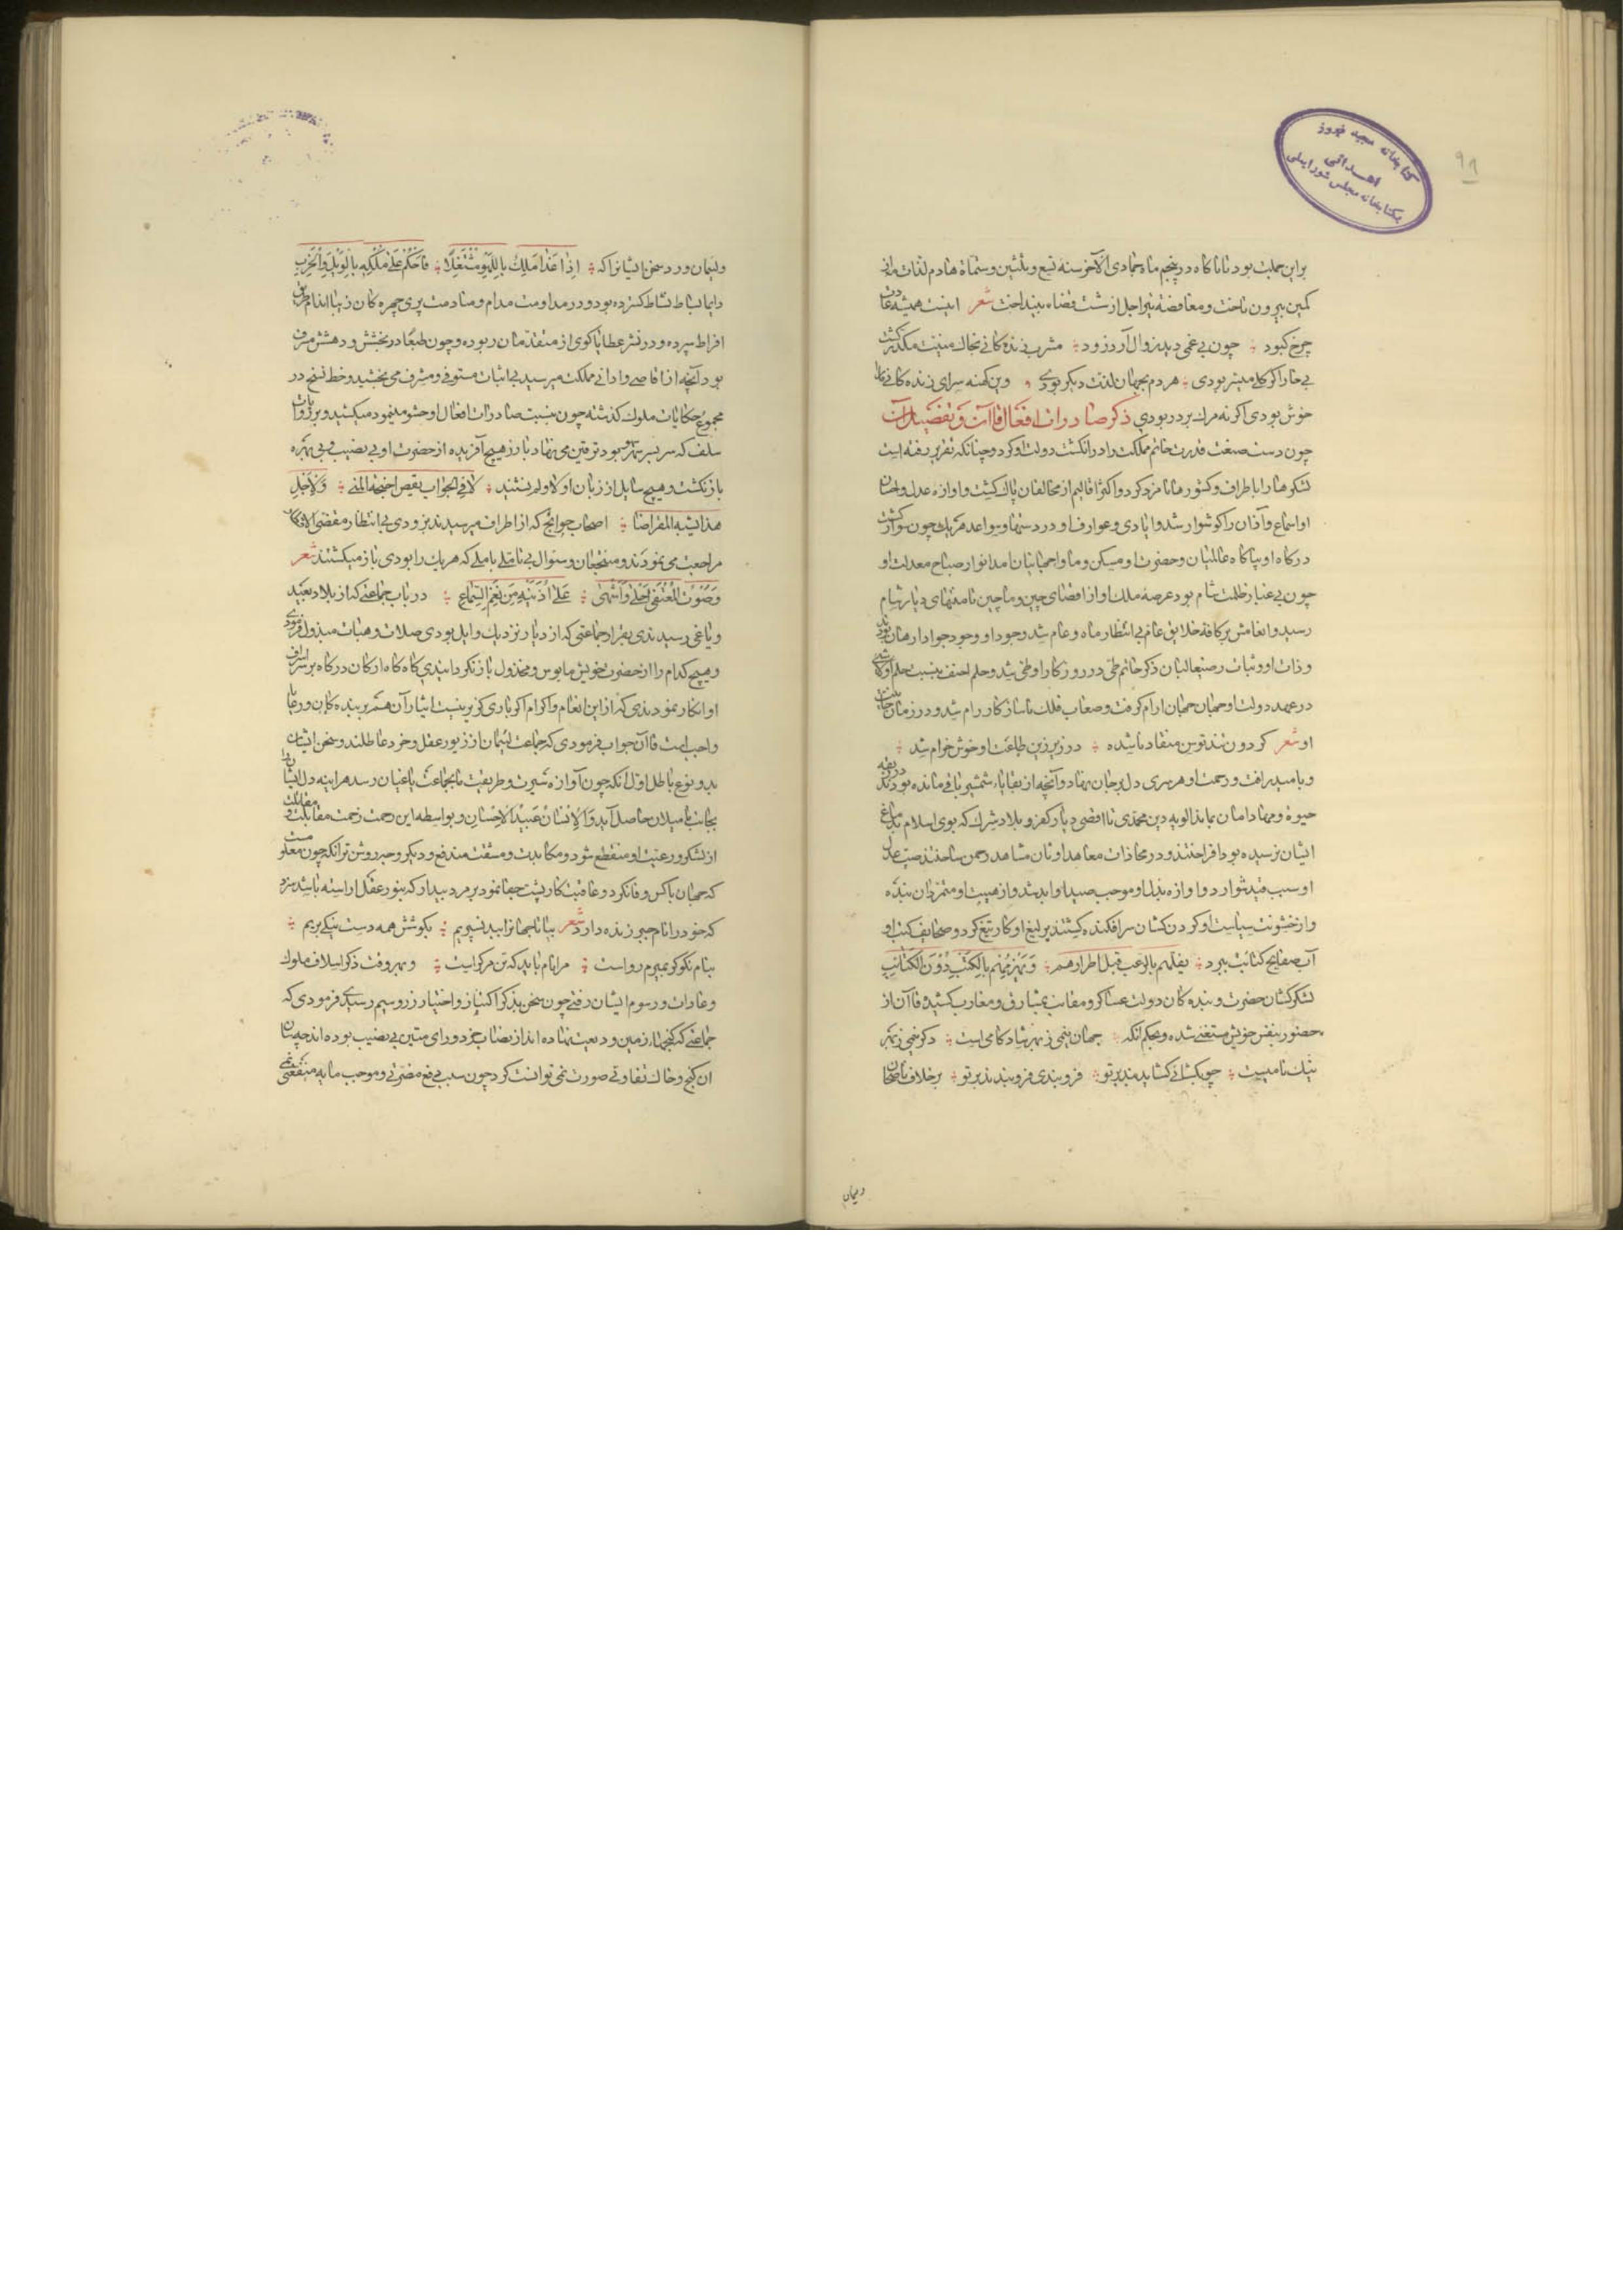 ۹۸
کتابخانه مجید فیروز
اهدائی
بکتابخانه مجلس شورایملی
برین جملت بود تا ناکاه در پنجم ماه جمادی الآخر سنه تسع و ثلثین و ستمأة هادم لذات از
کمین بیرون تاخت و مغافصة تیر اجل از شست قضاء بینداخت شعر اینست همیشه عادت
چرخ کبود چون بی غمی دید زوال آرد زود مشرب زنده کانی بخاک منیت مکدر کشت
بی خار اکر کلی میسر بودی هر دم بجهان لذت دیکر بودی وین کهنه سرای زنده کانی ما را
خوش بودی اکر نه مرک بر در بودی ذکر صادرات افعال قاآن و تفضیل آن
چون دست صنعت قدرت خاتم مملکت را در انکشت دولت او کرد و چنانکه تقریر رفته است
لشکرها را باطراف و کشورها نامزد کرد و اکثر اقالیم از مخالفان پاک کشت و اوازه عدل و احسان
او اسماع و آذان را کوشوار شد و ایادی و عوارف او در دستها و سواعد هر یک چون سوار کشت
درکاه او پناکاه عالمیان و حضرت او مسکن و ماوا جهانیان امد انوار صباح معدلت او
چون بی غبار ظلمت شام بود عرصه ملک او از اقصای چین و ماچین تا منتهای دیار شام
رسید و انعامش بر کافه خلایق عام بی انتظار ماه و عام شد وجود او و وجود جواد ارهان بودند
و ذات او و ثبات رضیعا لبان ذکر حاتم طی در روزکار او طی شد و حلم احنف بنسبت حلم او لاشی
در عهد دولت او جهان جهان ارام کرفت و صعاب فلک ناسازکار رام شد و در زمان خانیت
او شعر کردون تند توسن منقاد ناشده در زیر زین طاعت او خوش خرام شد
و بامید رافت و رحمت او هر سری دل بر جان نهاد و آنچه از بقایا شمشیر باقی مانده بودند در ربقه
حیوة و مهاد امان بماند الویه دین محمدی تا اقصی دیار کفر و بلاد شرک که بوی اسلام بدماغ
ایشان نرسیده بود افراختند و در محاذات معابد اوثان مشاهد رحمن ساختند صیت عدل
او سبب قید شوارد و اوازه بذل او موجب صید اوابد شد و از هیبت او متمردان بنده
و از خشونت سیاست او کردن کشان سرافکنده کشتند یرلیغ او کار تیغ کرد و صحایف کتب او
آب صفایح کتائب ببرد یفلهم بالرعب قبل اطرادهم و یهزمهم بالکتب دون الکتائب
لشکرکشان حضرت و بنده کان دولت عساکر و مقانب بمشارق و مغارب کشید قاآن از
حضور بنفس خویش مستغنی شده و بحکم انکه جهان نیمی ز بهر شادکامی است دکر نیمی ز بهر
نیک نامیست چو بکشائی کشاید بند بر تو فرو بندی فرو بندند بر تو بر خلاف ناصحان
ولیمان
ولیمان و رد سخن ایشانرا که اذا غدا ملک باللهو مشتغلا فاحکم علی ملکه بالویل والحرب
دایما بساط نشاط کسترده بود و در مداومت مدام و منادمت پری چهره کان زیبا اندام طریق
افراط سپرده و در نثر عطایا کوی از متقدمان ربوده و چون طبعا در بخشش و دهشش مسرف
بود آنچه از اقاصی و ادانی مملکت میرسید بی اثبات مستوفی و مشرف می بخشید و خط نسخ در
مجموع حکایات ملوک کذشته چون بنسبت صادرات افعال او حشو مینمود میکشید و بر روایات
سلف که سر بسر سهو بود ترقین می نهاد بارز هیچ آفریده از حضرت او بی نصیب و بی بهره
باز نکشت و هیچ سایل از زبان او لا و لم نشنید لا فی الجواب یقص اجنحة المنی و لاجل
هذا یشبه المقراضا اصحاب حوایج که از اطراف میرسیدند بزودی بی انتظار مقضی الاوطار
مراجعت می نمودند و منتجعان و سئوال بی تامل باملی که هر یک را بودی باز میکشتند شعر
وصوت المعتفی احلی واشهی علی اذنیه من نغم السماع در باب جماعتی که از بلاد بعید
و یاغی رسیدندی بقرار جماعتی که از دیار نزدیک و ایل بودی صلات و هبات مبذول فرمودی
و هیچ کدام را از حضرت خویش مایوس و مخذول باز نکردانیدی کاه کاه ارکان درکاه بر اسراف
او انکار نمودندی که از این انعام و اکرام اکر باری کزیر نیست ایثار آن هم بر بنده کان و رعایا
واجب است قاآن جواب فرمودی که جماعت لئیمان از زیور عقل و خرد عاطلند و سخن ایشان
بدو نوع باطل اول انکه چون آوازه سیرت و طریقت ما بجماعت یاغیان رسد هراینه دل ایشانرا
بجانب ما میلان حاصل آید والانسان عبید الاحسان و بواسطه این رحمت زحمت مقابلت و مقاتلت
از لشکر و رعیت او منقطع شود و مکابدت و مشقت مندفع و دیکر وجه روشن تر انکه چون معلومست
که جهان با کس وفا نکرد و عاقبت کار پشت جفا نمود بر مرد بیدار که بنور عقل اراسته باشد سزد
که خود را نام خیر زنده دارد شعر بیا تا جهانرا ببد نسپریم بکوشش همه دست نیکی بریم
بنام نکو کر بمیرم رواست مرا نام باید که تن مرک راست و بهر وقت ذکر اسلاف ملوک
و عادات و رسوم ایشان رفتی چون سخن بذکر اکتناز و اختیار زر و سیم رسیدی فرمودی که
جماعتی که کنجها در زمین ودیعت نهاده اند از نصاب خرد و رای متین بی نصیب بوده اند چه میان
ان کنج و خاک تفاوتی صورت نمی توانست کرد چون سبب دفع مضرتی و موجب مایه منفعتی نمی